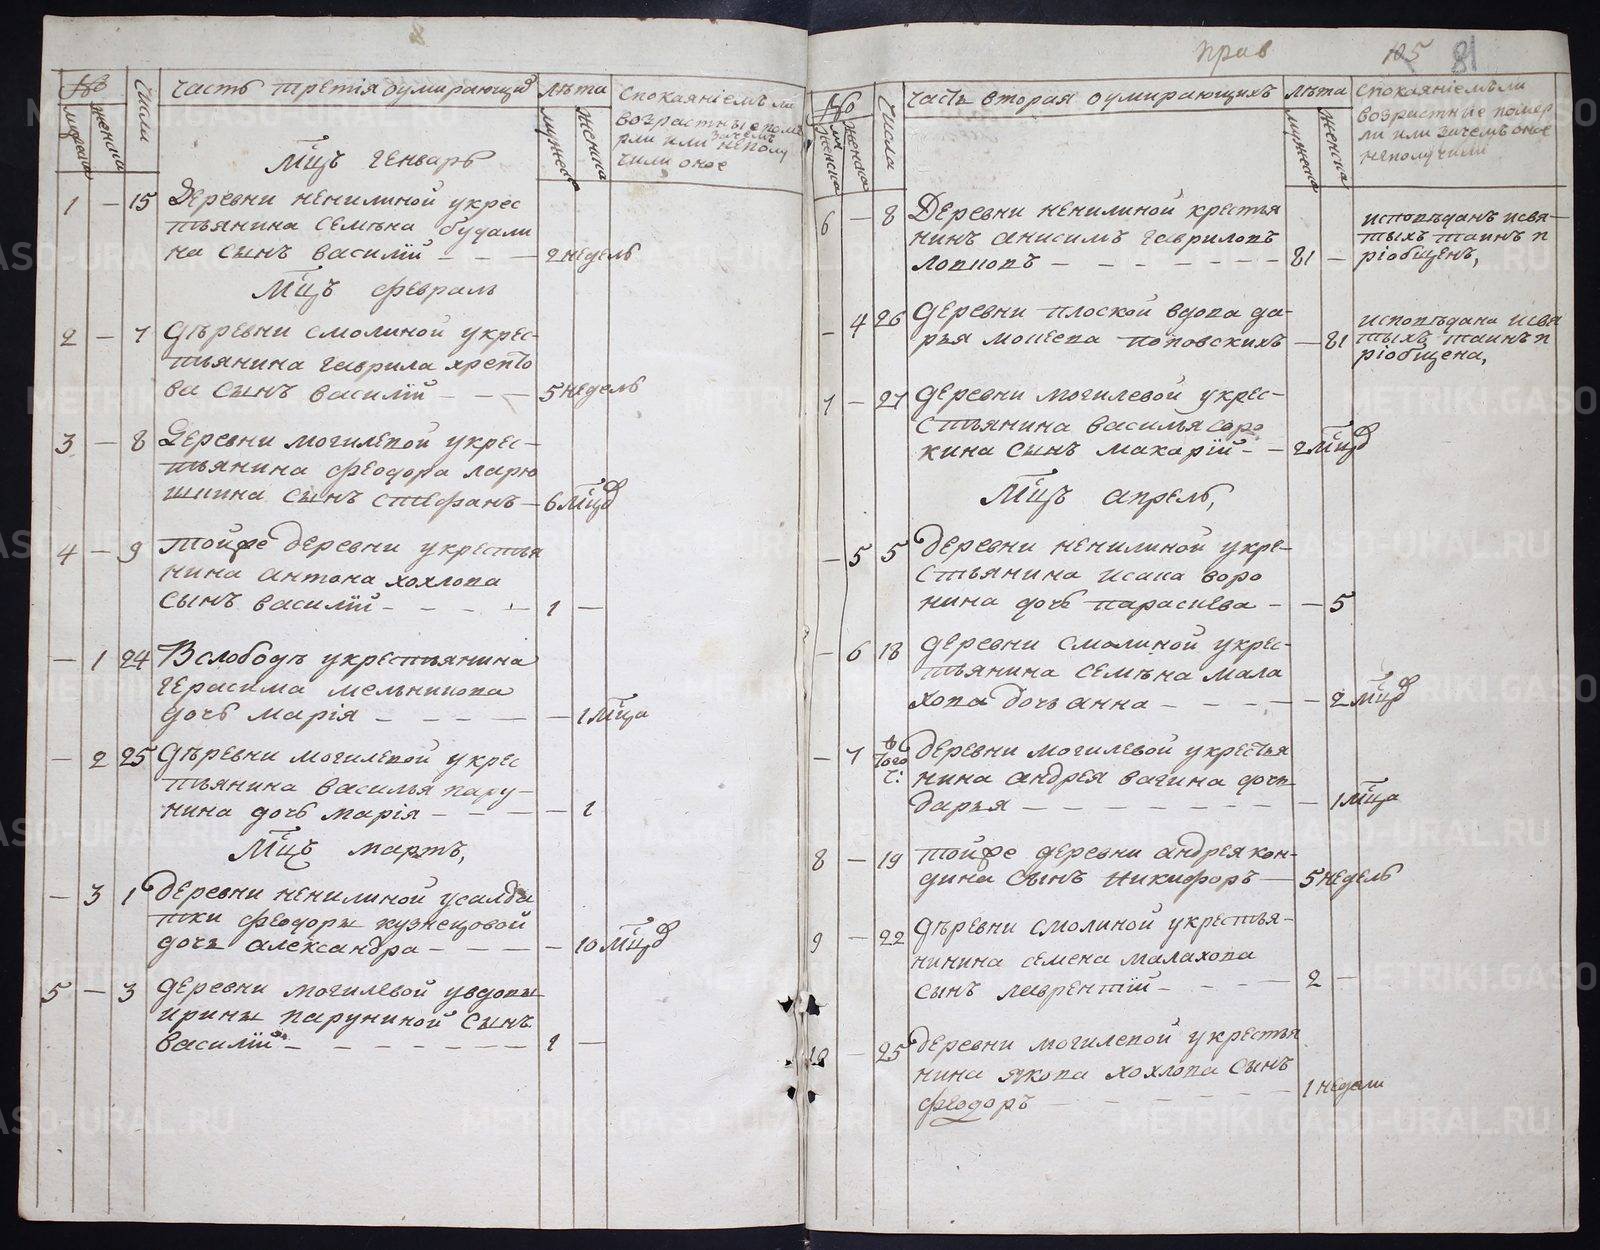 №
мужеска
женска
Числа
Часть третія оумирающих
Лѣта
мужеска
женска
Спокаяніемъ ли
возрастные поме
рли или зачемъ неполу
чили оное
Мцъ Генварь
1 — 15 Деревни Ненилиной укрес
тьянина Семѣна Будали
на сынъ Василïй — — — 2 недель
Мцъ Февраль
2 — 7 Дѣревни Смолиной укрес-
тьянина Гаврила Хрепто
ва сынъ Василïй — — — 5 недель
3 — 8 Деревни Могилевой укрес-
тьянина Феодора Ларю
шкина сынъ Стефанъ — 6 Мцъ
4 — 9 Тойже деревни укрестья
нина Антона Хохлова
сынъ Василïй — — — — 1 —
— 1 24 Вслободѣ укрестьянина
Герасима Мельникова
дочь Марія — — — — — 1 Мца
— 2 25 Дѣревни Могилевой укрес
тьянина Василья Пару-
нина дочь Марія — — — — 1
Мцъ Мартъ,
— 3 1 Деревни Ненилиной усалда
тки Феодоры Кузнецовой
дочь Александра — — — — — 10 Мцъ
5 — 3 Деревни Могилевой увдовы
Ирины Паруниной сынъ
Василïй — — — — — — — 1 —
прав
105 81
№
мужеска
женска
Числа
Часть вторая оумирающихъ
Лѣта
мужеска
женска
Спокаяніемъ ли
возрастные помер
ли или зачемъ оное
неполучили
6 — 8 Деревни Ненилиной крестья
нинъ Анисимъ Гавриловъ
Ловковъ — — — — — — — 81 —
исповѣданъ исвя-
тыхъ таинъ п
ріобщенъ,
— 4 26 Деревни Плоской вдова Да-
рья Мокеева Поповскихъ — 81
исповѣдана исвя
тыхъ таинъ п
ріобщена,
7 — 27 Деревни Могилевой укрес-
стьянина Василья Соро
кина сынъ Макарïй — — 2 Мцъ
Мцъ Апрель,
— 5 5 Деревни Ненилиной укре-
стьянина Исака Воро
нина дочь Параскева — — 5
— 6 18 Деревни Смолиной укрес-
тьянина Семѣна Мала
хова дочь Анна — — — — — 2 Мцъ
— 7 того ч: Деревни Могилевой укрестья
нина Андрея Вагина дочь
Дарья — — — — — — — — 1 Мца
8 — 19 Тойже деревни Андрея Кон-
дина сынъ Никифоръ — 5 недель
9 — 22 Дѣревни Смолиной укрестья-
нинина Семена Малахова
сынъ Лаврентïй — — — — 2 —
10 — 25 Деревни Могилевой укрестья
нина Якова Хохлова сынъ
Феодоръ — — — — — — — 1 недели